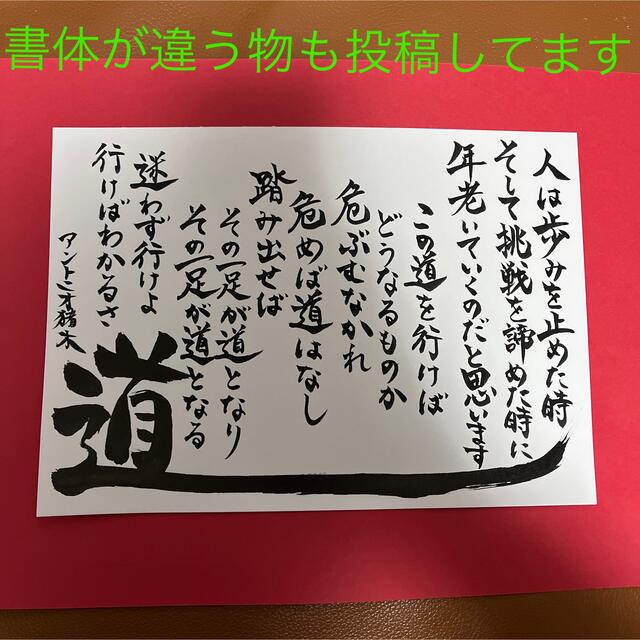 書体が違う物も投稿してます
人は歩みを止めた時
そして挑戦を諦めた時に
年老いていくのだと思います
この道を行けば
どうなるものか
危ぶむなかれ
危めば道はなし
踏み出せば
その一足が道となり
その一足が道となる
迷わず行けよ
行けばわかるさ
アントニオ猪木
道